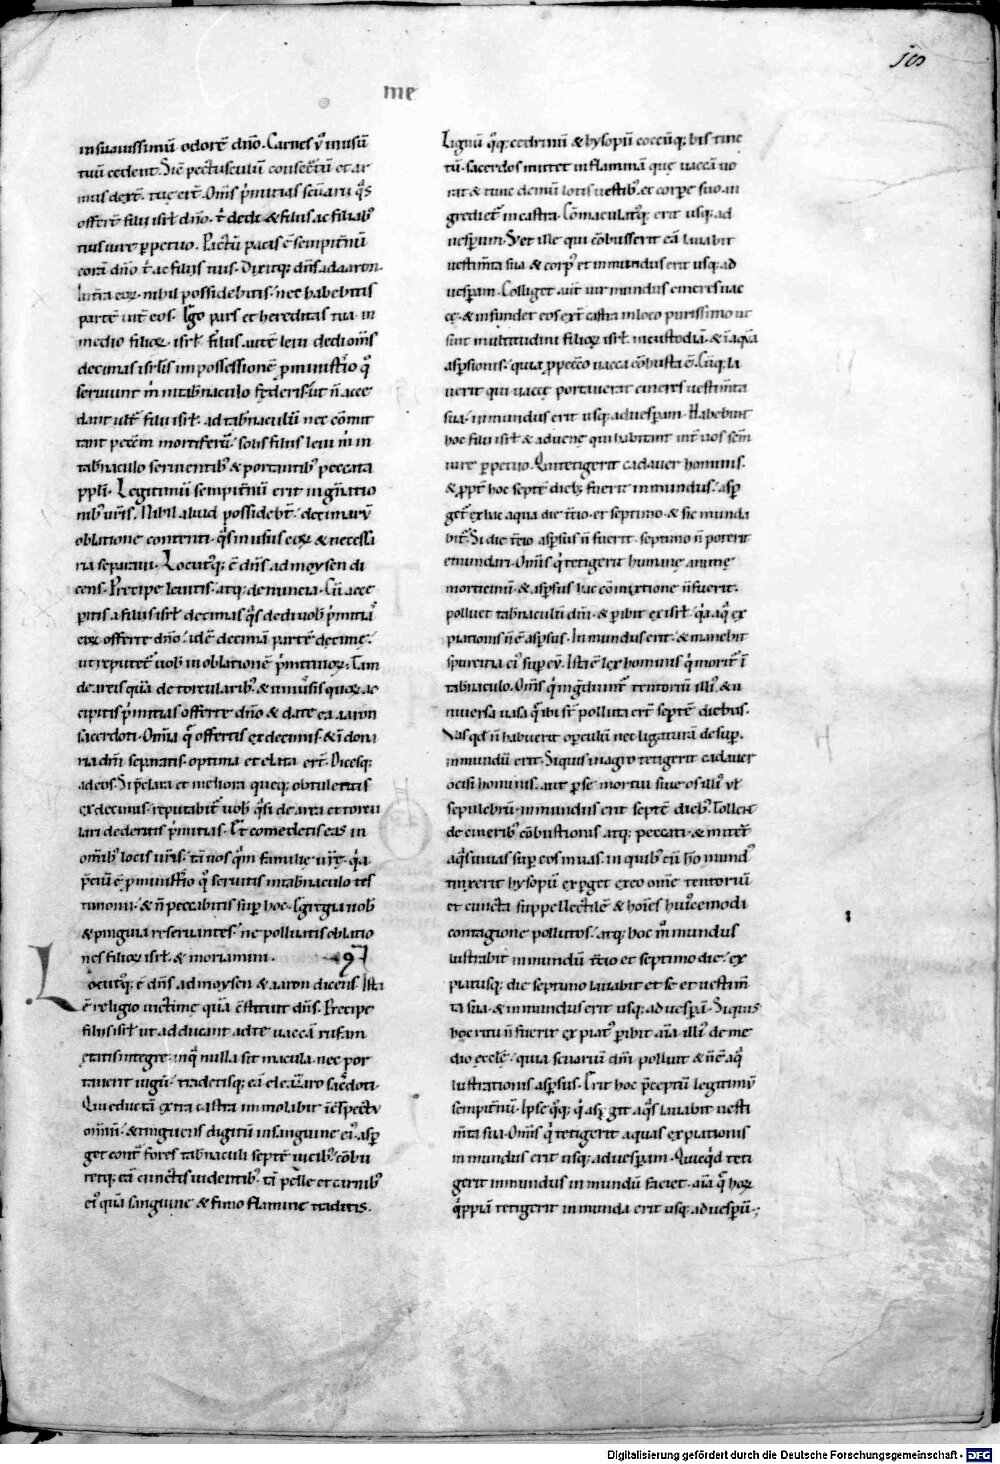 me
in suauissimū odorē dño. Carnes ū in usū
tuū cedent. Sic̄ pectusculū consecᵃtū et ar
mus dext̄. tuę ert̄. Om̄s p̄mitias sc̄uarū qͣs
offert̄ filij isrł dño. t̄ dedi & filiis ac filiab᷒
tuis iure ꝑpetuo. Pactū pacis ē sempit̄nū
corā dño t̄ ac filijs tuis. Dixitq; dñs ad aaron.
In t̄ra eoꝝ nihil possidebitis. nec habebitis
partē int̄ eos. Ego pars et hereditas tua in
medio filioꝝ isrł. filiis autē leui dedi om̄s
decimas isrł'is in possessionē ꝑ ministͥo qͦ
seruiunt m̄ in tab̄naculo fęderis. ut ñ acce
dant ult̄ filij isrł ad tab̄naculū nec cōmit
tant pecc̄m mortiferū. solis filiis leui m̄ in
tab̄naculo seruientib᷒ & portantib᷒ peccata
ppłi. Legitimū sempit̄nū erit in gn̄atio
nib᷒ ur̄is. Nihil aliud possidebt̄. decimarū
oblatione contenti. qͣs in usus eoꝝ & necessa
ria separaui. Locutusq; ē dñs ad moysen di
cens. Precipe leuitis. atq; denuncia. Cū acce
ꝑitis a filiis isrł decimas qͣs dedi uob̄ p̄mitiaᵃ
eaꝝ offerte dño. idē decimā partē decimę.
ut reputet̄ uob̄ in oblationē p̄mitiuoꝝ. Tam
de areis quā de torcularib᷒. & uniūsis quoꝝ ac
cipitis p̄mitias offerte dño & date ea aaron
sacerdoti. Omīa qͣ offertis ex decimis. & ī dona
ria dñi sepatis. optima et electa ert̄. Dicesq;
ad eos. Si p̄clara et meliora queq; obtuleritis
ex decimis. reputabit̄ uob̄ qͣsi de area et torcu
lari dederitis p̄mitias. Et comedetis eas in
om̄ib᷒ locis ur̄is. tā uos qͣm familie ur̄ę. qͥa
p̄ciū ē ꝑ ministͥo qͦ seruitis in tab̄naculo tes
timonii. & ñ peccabitis suꝑ hoc. Egregia uob̄
& pinguia reseruantes. ne polluatis oblatio
nes filioꝝ isrł. & moriamini.
Locutusq; ē dñs ad moysen & aaron dicens. Ista
ē religio uictimę quā cstituit dñs. Precipe
filiis isrł ut adducant ad te uaccā rufam
ętatis integrę. in qͣ nulla sit macula. nec por
tauerit iugū. tradetisq; eā eleazaro sac̄doti.
Qui eductā extra castra immolabit ī c̄spectu
omniū. & tinguens digitū in sanguine ei᷒. asꝑ
get contͣ fores tab̄naculi septē uicib᷒. cōbu
retq; eā cunctis uidentib᷒. tā pelle et carnib᷒
ei᷒ quā sanguine & fimo flammę traditis.
Lignū qͦq; cedrinū & hysopū coccūq; bis tinc
tū. sacerdos mittet in flammā quę uaccā uo
rat & tunc demū lotis uestib᷒. et corpe suo. in
grediet̄ in castra. Cōmaculatusq; erit usq; ad
uesperum. Set ille qui cōbusserit eā lauabit
uestim̄ta sua & corp᷒ et inmundus erit usq; ad
uesperam. Colliget aut̄ uir mundus cineres uac
cę. & infundet eos ext̄ castra in loco purissimo ut
sint multitudini filioꝝ isrł in custodiā. & ī aqͣā
aspsionis. quia ꝑ peccͦ uacca cōbusta ē. Cūq; la
uerit qui uaccę portauerat cineres uestim̄ta
sua. inmundus erit usq; ad uesperam. Habebunt
hoc filii isrł & aduenę qui habitant int̄ uos sc̄m
iure ꝑpetuo. Qui tetigerit cadauer hominis.
& ꝓpt̄ hoc septē dieb; fuerit inmundus. asꝑ
get̄ ex hac aqua die tͨio. et septimo. & sic munda
bit̄. Si die tͨio asꝑsus ñ fuerit. septimo ñ poterit
emundari. Om̄is qͥ tetigerit humanę animę
morticinū. & asꝑsus hac cōmixtione ñ fuerit.
polluet tab̄naculū dñi. & ꝑibit ex isrł. qͥa aqͣ ex
piationis ñ ē asꝑsus. Inmundus erit. & manebit
spurcitia ei᷒ suꝑ eū. Ista ē lex hominis qͥ morit̄ ī
tab̄naculo. Om̄s qͥ ingͬdiunt̄ tentoriū illi᷒. & u
niuersa uasa qͣ ibi st̄ polluta ert̄ septē diebus.
Vas qd̄ ñ habuerit oꝑculū nec ligaturā desuꝑ.
inmundū erit. Siquis in agro tetigerit cadauer
occisi hominis. aut ꝑ se mortui siue os illi᷒ uł
sepulchrū. inmundus erit septē dieb᷒. Tollent
de cinerib᷒ cōbustionis atq; peccati. & mittent
aqͣs uiuas suꝑ eos in uas. in quib᷒ cū hō mund᷒
tinxerit hysopū exꝑget ex eo omne tentoriū
et cuncta suppellectilē & hoīes hui᷒cemodi
contagione pollutos. atq; hoc m̊ mundus
lustrabit inmundū tͨio et septimo die. ex
piatusq; die septimo lauabit et se et uestim̄
ta sua. & inmundus erit usq; ad uesꝑā. Siquis
hoc ritu ñ fuerit expiat᷒ ꝑibit aīa illi᷒ de me
dio ecclę. quia sc̄uariū dñi polluit & ñ ē aqͣ
lustrationis asꝑsus. Erit hoc p̄ceptū legitimū
sempit̄nū. Ipse qͦq; qͥ asꝑgit aqͣs lauabit uesti
m̄ta sua. Om̄is qͥ tetigerit aquas expiationis
inmundus erit usq; ad uesperam. Quicqͥd teti
gerit inmundus inmundū faciet. aīa qͣ hoꝝ
qͥppiā tetigerit inmunda erit usq; ad uesꝑū.;
Digitalisierung gefördert durch die Deutsche Forschungsgemeinschaft - DFG